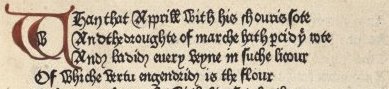 Whan that Apprill with his shouris sote
And the droughte of marche hath ꝑcid þͤ rote
And badid euery veyne in suche licour
Of whiche vertu engendrid is the flour